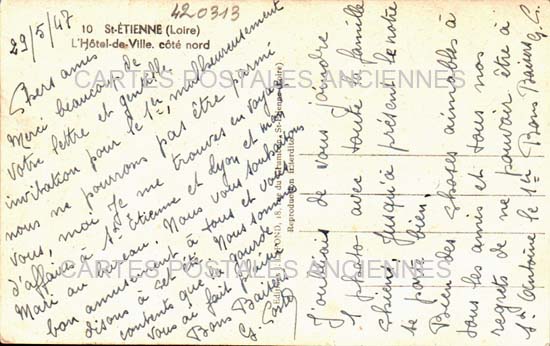 420313
10 St-ÉTIENNE (Loire)
L'Hôtel-de-Ville. côté nord
29/5/47
Chers amis
Merci beaucoup de
votre lettre et gentille
invitation pour le 1er, malheureusement
nous ne pourrons pas être parmi
vous, moi je me trouve en voyage
d'affaires à St Etienne et Lyon et mon
Mari au bureau. Nous vous souhaitons
bon amusement à tous et vous
disons à cet été. Nous sommes
contents que la garde
vous ai fait plaisir
Bons Baisers
J'oubliais de vous joindre
1 photo avec toute la famille
chiens. Jusqu'à présent le notre
se porte bien.
Bien des choses aimables à
tous les amis et tous nos
regrets de ne pouvoir être à
St Antoine le 1er Bons Baisers
Reproduction Interdite
CARTES POSTALES ANCIENNES
CARTES POSTALES ANCIENNES